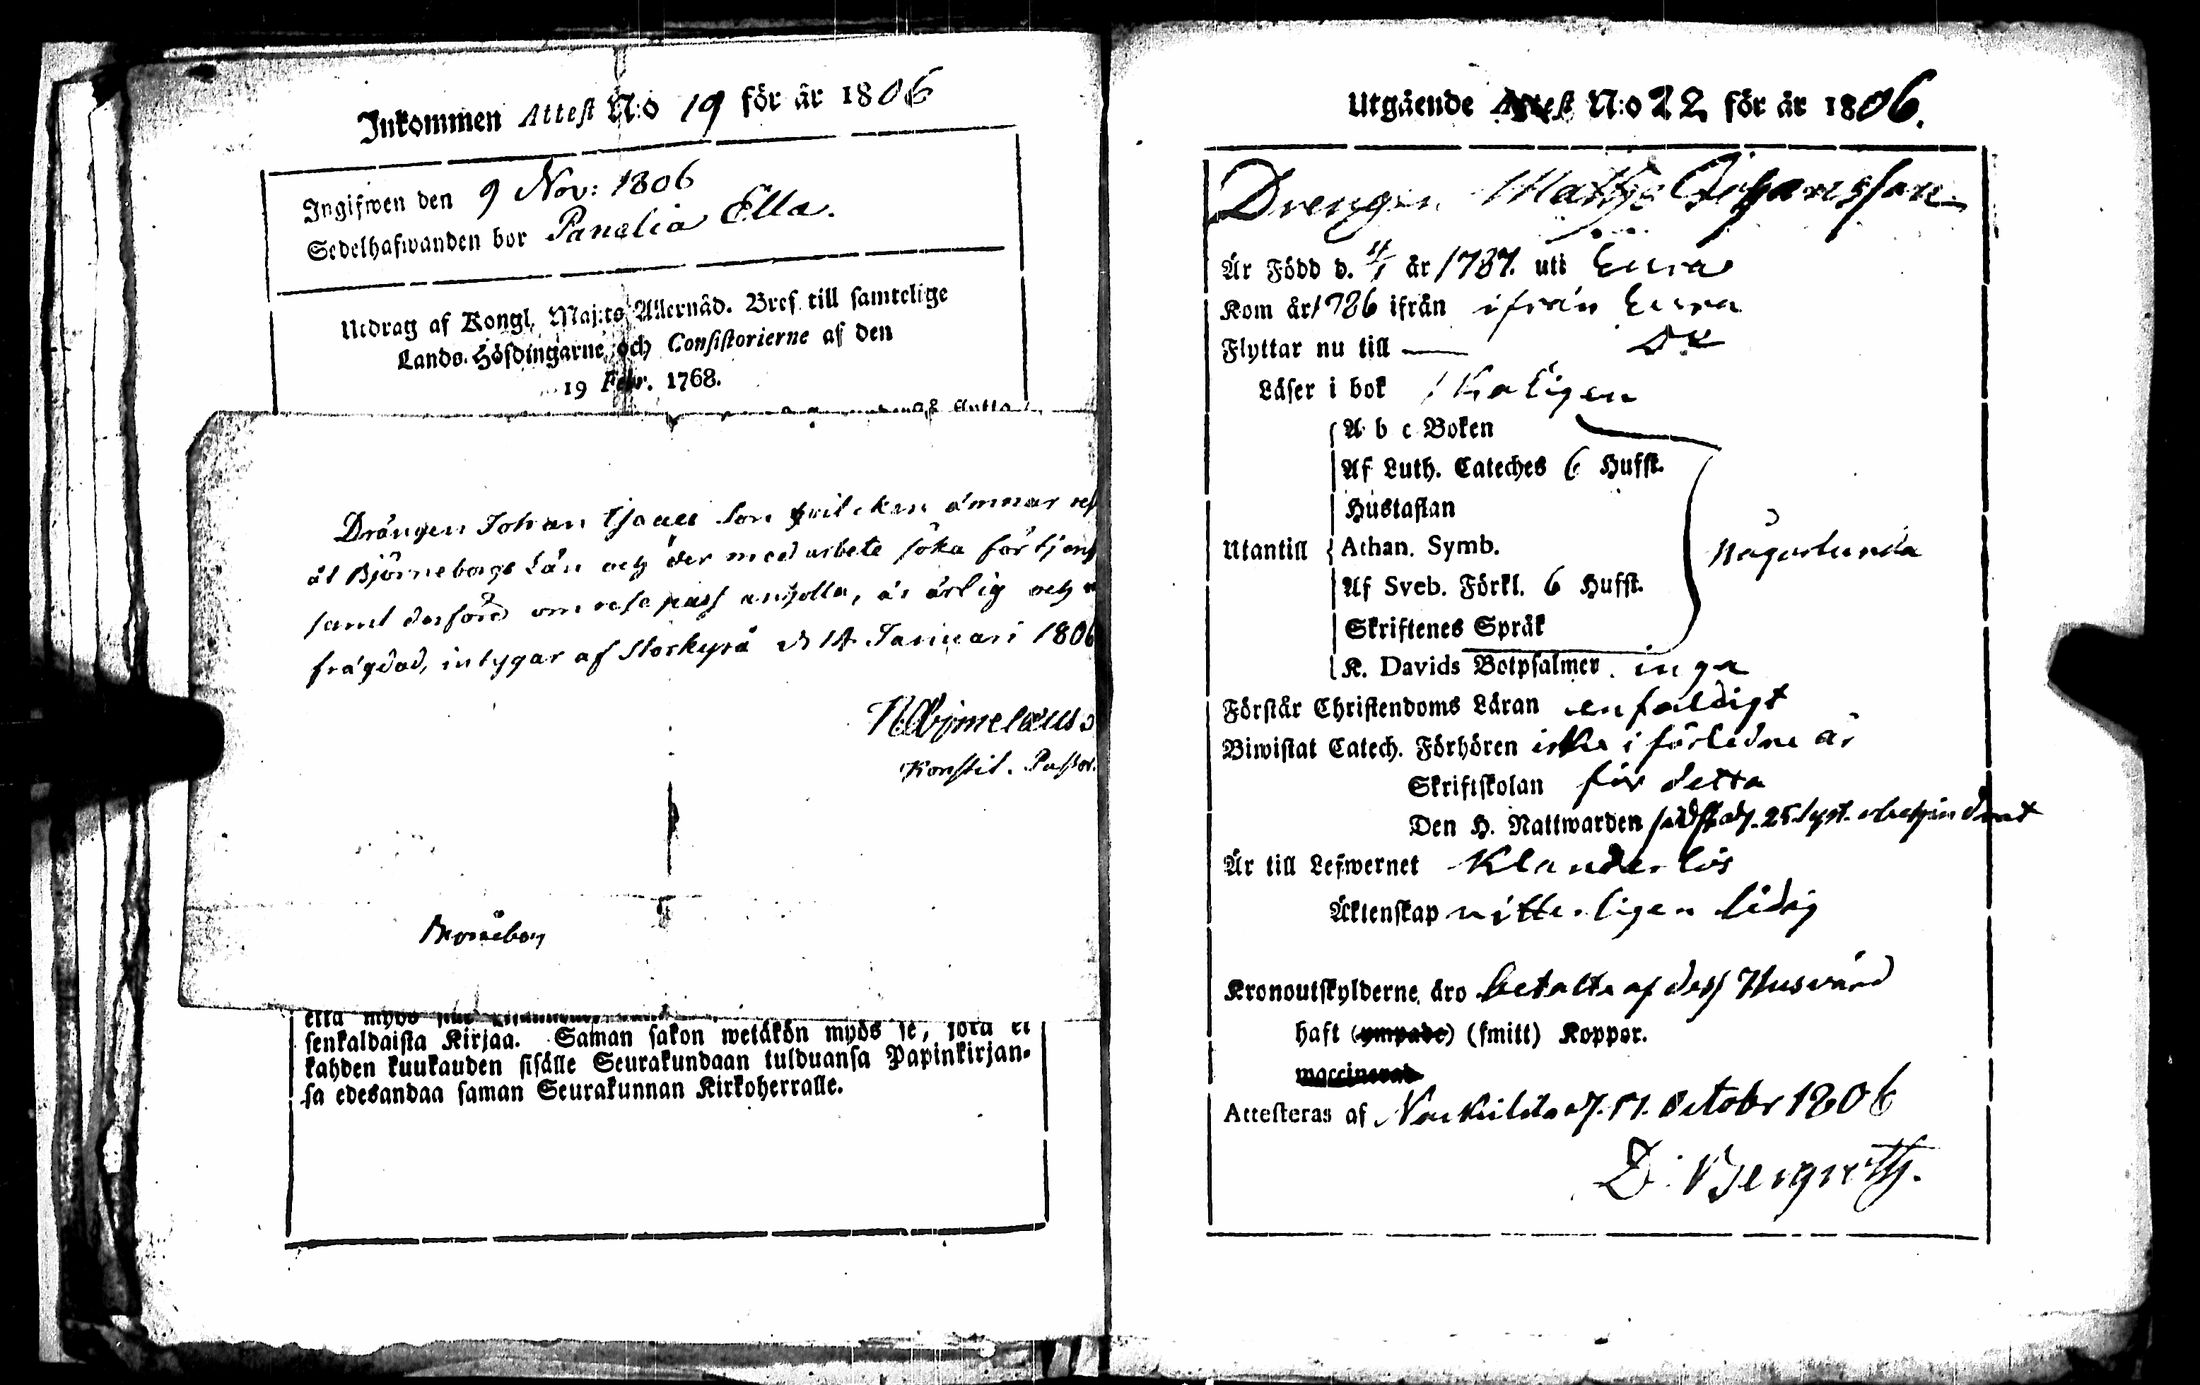 Inkommen Attest N:o 19 för år 1806
Ingifwen den 9 Nov: 1806
Sedelhafwanden bor Panelia Ella.
Utdrag af Kongl. Maj:ts Allernåd. Bref till samtelige
Lands-Höfdingarne och Consistorierne af den
19 Febr. 1768.
Drängen Johan Isaac son hvilcken ämnar
åt Björneborgs Län och der med arbete söka förtjens
samt derföre om respass anholla, är ärlig och
frägdad, intygar af Storkyrå d 14 Januari 1806
Konstit. Pastor
senkaldaista Kirjaa. Saman sakon wetäkön myös se, joka ei
kahden kuukauden sisälle Seurakundaan tulduansa Papinkirjan-
sa edesandaa saman Seurakunnan Kirkoherralle.
Utgående Attest N:o 22 för år 1806.
Drengen Matts Johansson
Är Född d. 4/1 år 1787. uti Eura
Kom år 1786 ifrån ifrån Eura
Flyttar nu till — Do
Läser i bok skäligen
A b c Boken
Af Luth. Cateches 6 Hufst.
Hustaflan
Utantill Athan. Symb. någorlunda
Af Sveb. Förkl. 6 Hufst.
Skriftenes Språk
K. Davids Botpsalmer inga
Förstår Christendoms Läran enfaldigt
Biwistat Catech. Förhören icke i förledne år
Skriftskolan för detta
Den H. Nattwarden
Är till Lefwernet Klanderlös
Äktenskap witterligen ledig
Kronoutskylderne äro betalte af dess Husvärd
haft (ympade) (smitt) Koppor.
waccinerad
Attesteras af Nakkila d. 17. Octobr 1806
D. Bergroth.